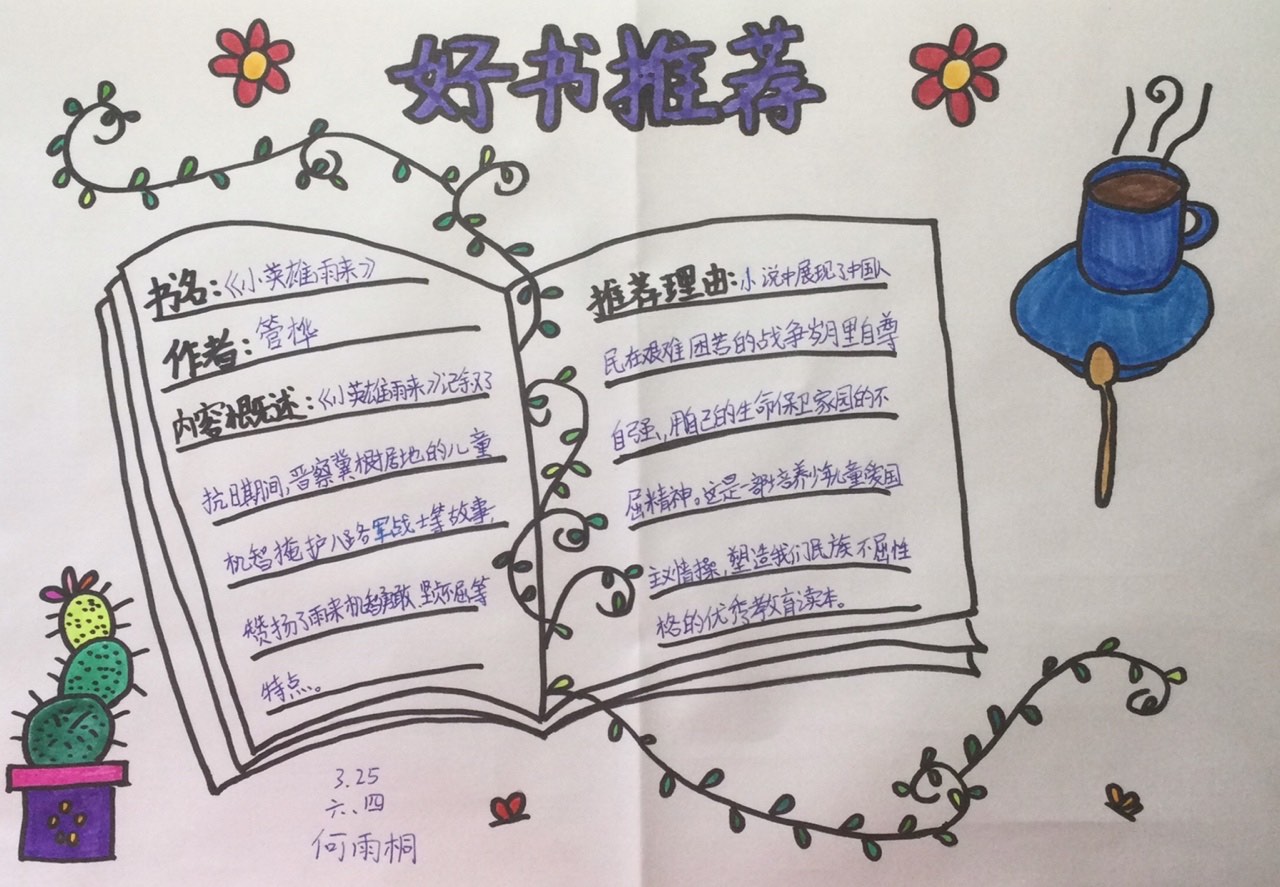 好书推荐
书名:《小英雄雨来》
作者:管桦
内容概述:《小英雄雨来》记录了
抗日期间,晋察冀根据地的儿童
机智掩护八路军战士等故事,
赞扬了雨来机智勇敢、坚贞不屈等
特点。
推荐理由:小说中展现了中国人
民在艰难困苦的战争岁月里自尊
自强,用自己的生命保卫家园的不
屈精神。这是一部培养少年儿童爱国
主义情操,塑造我们民族不屈性
格的优秀教育读本。
3.25
六、四
何雨桐